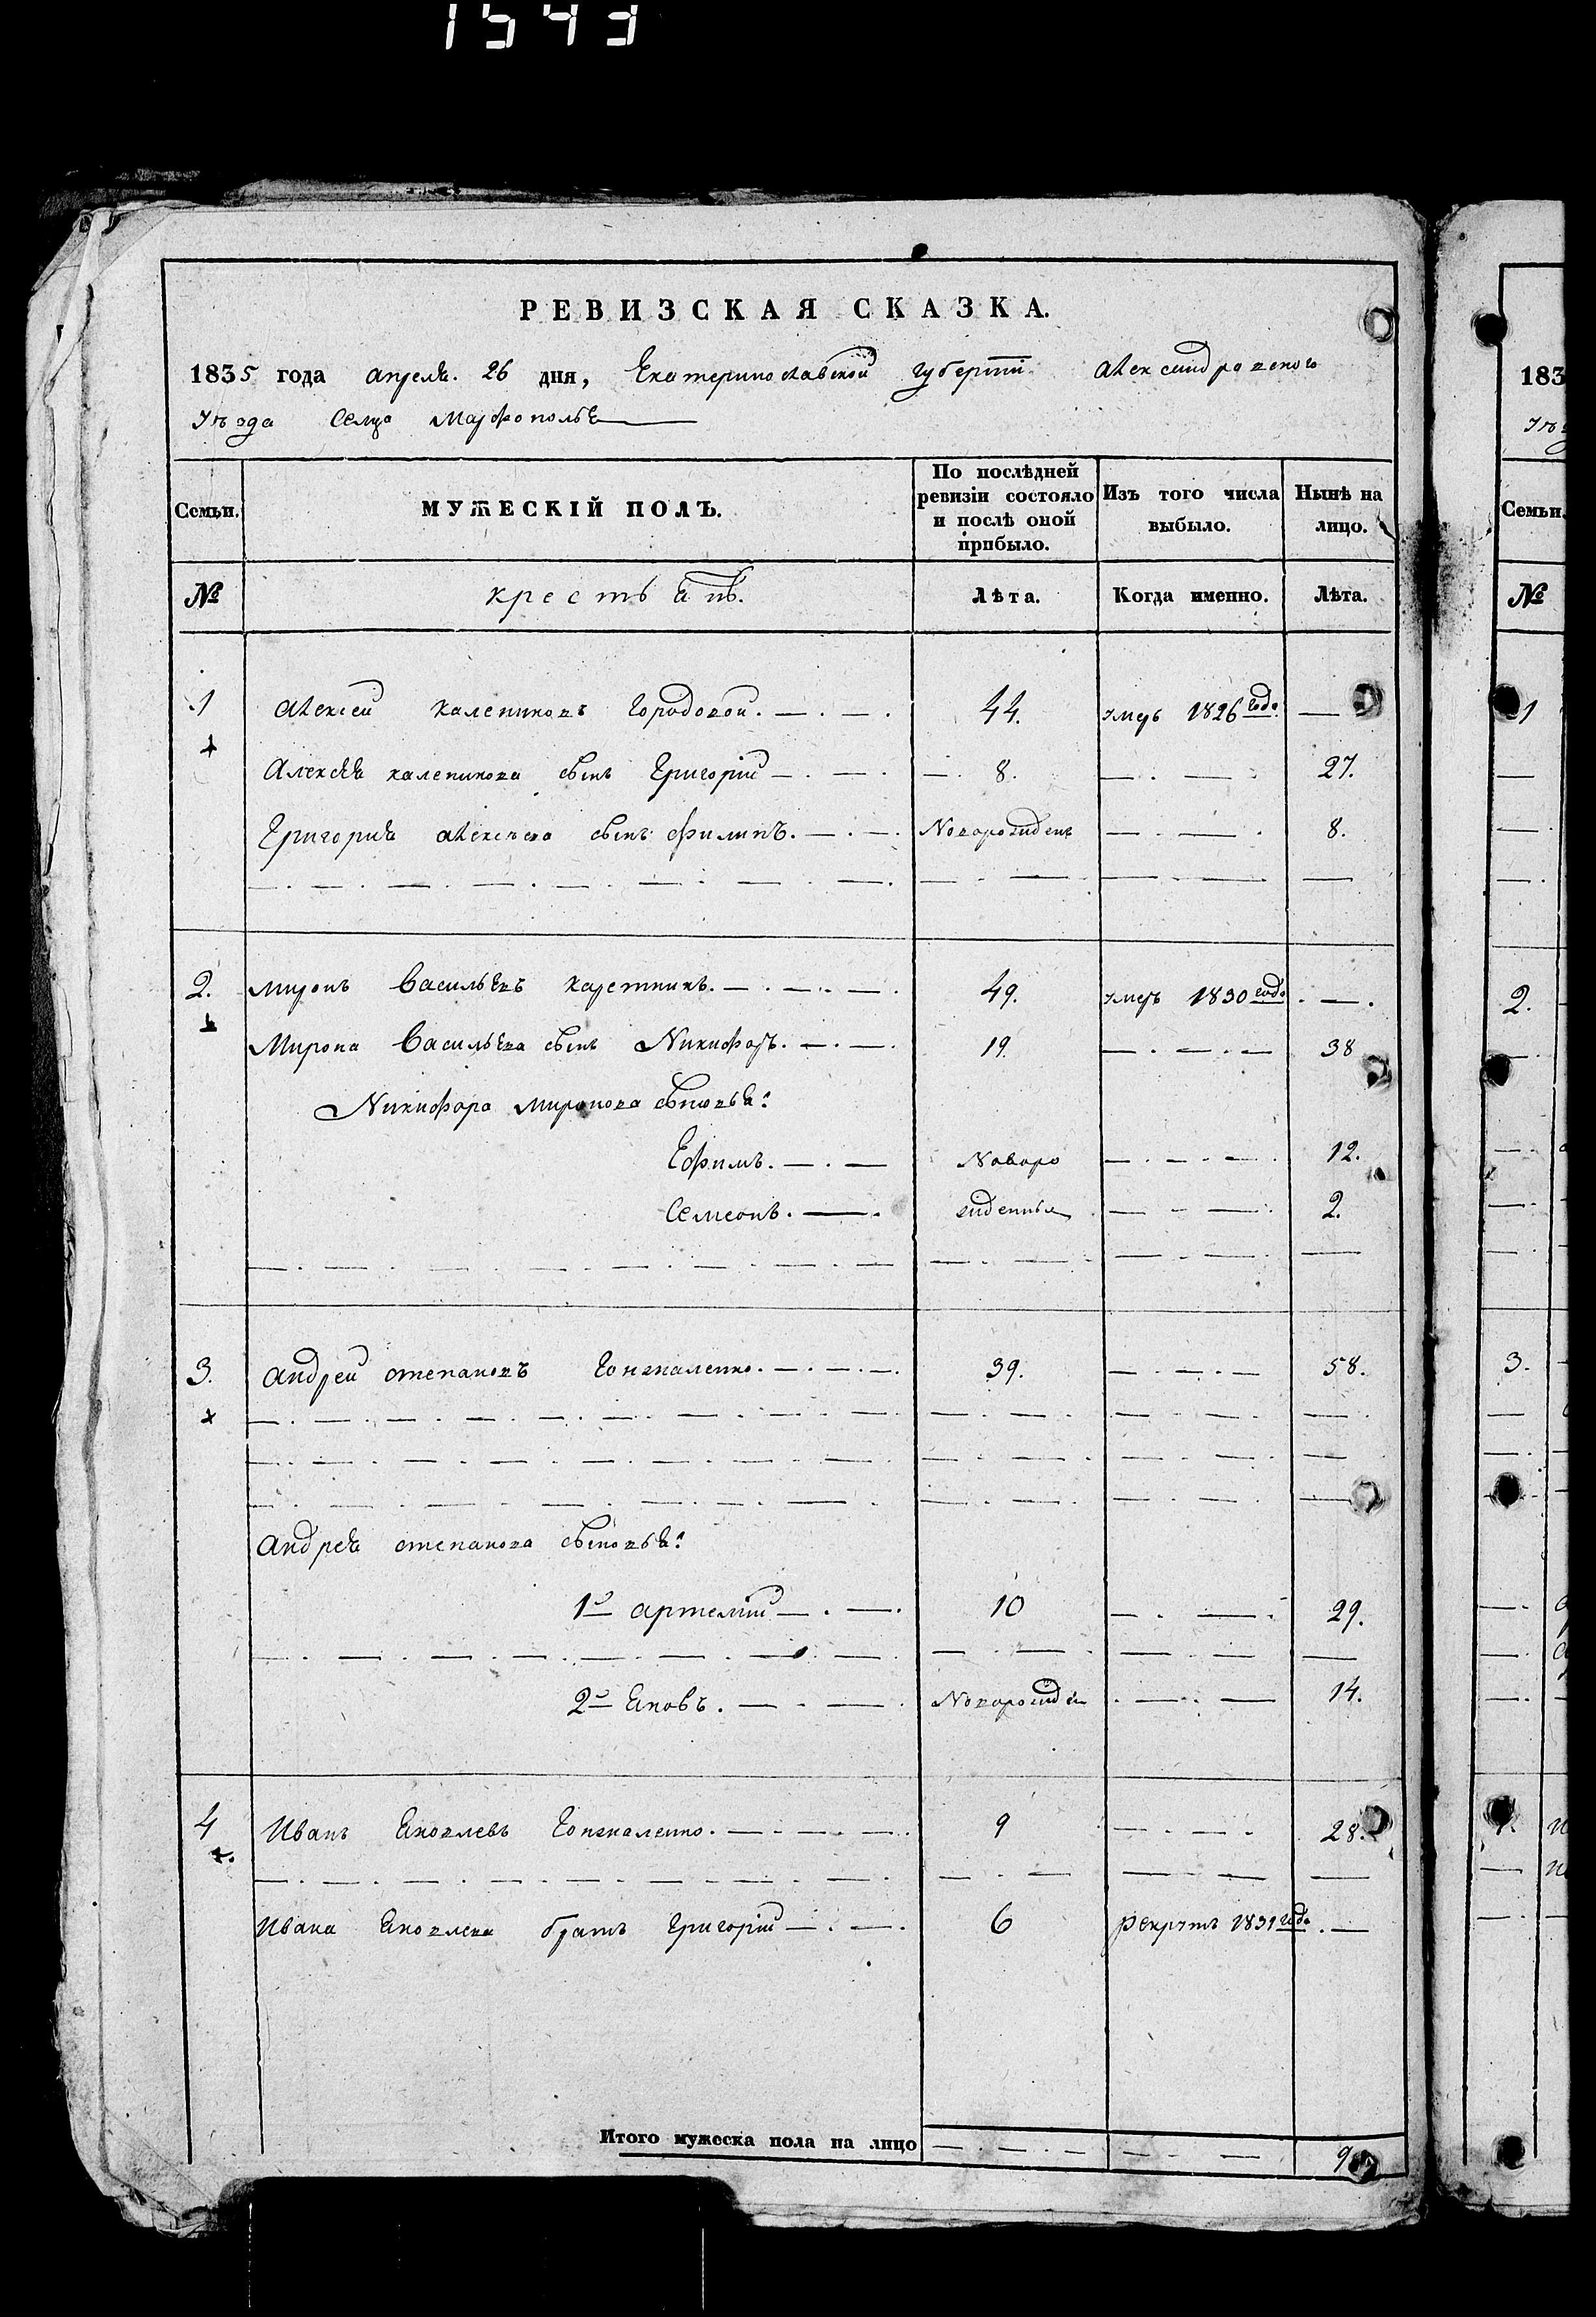 1543
РЕВИЗСКАЯ СКАЗКА.
1835 года апреля. 26 дня, Екатеринославской губернии Александровского
Уъзда Селца Марфополья
Семьи. МУЖЕСКІЙ ПОЛЪ. По послѣдней ревизіи состояло и послѣ оной прибыло. Изъ того числа выбыло. Нынѣ на лицо.
№ крестьянъ. Лѣта. Когда именно. Лѣта.
1 Алексей калениковъ Городовой. 44. умеръ 1826 года
Алексея каленикова сынъ Григорій 8. 27.
Григория алексеева сынъ Филипъ. Новорожденъ 8.
2. Миронъ Васильевъ каретникъ. 49. умеръ 1830 года
Мирона Васильева сынъ Никифоръ. 19. 38
Никифора миронова сыновья:
Ефимъ. Новоро 12.
Семенъ. жденныя 2.
3. Андрей степановъ 39. 58.
Андрея степанова сыновья:
1й артемій 10 29.
2й Яковъ. Новорожде 14.
4 Иванъ Яковлевъ 9 28.
Ивана Яковлева братъ Григорій 6 рекрутъ 1831 года
Итого мужеска пола на лицо 9
183
Семьи.
№
1
2.
3.